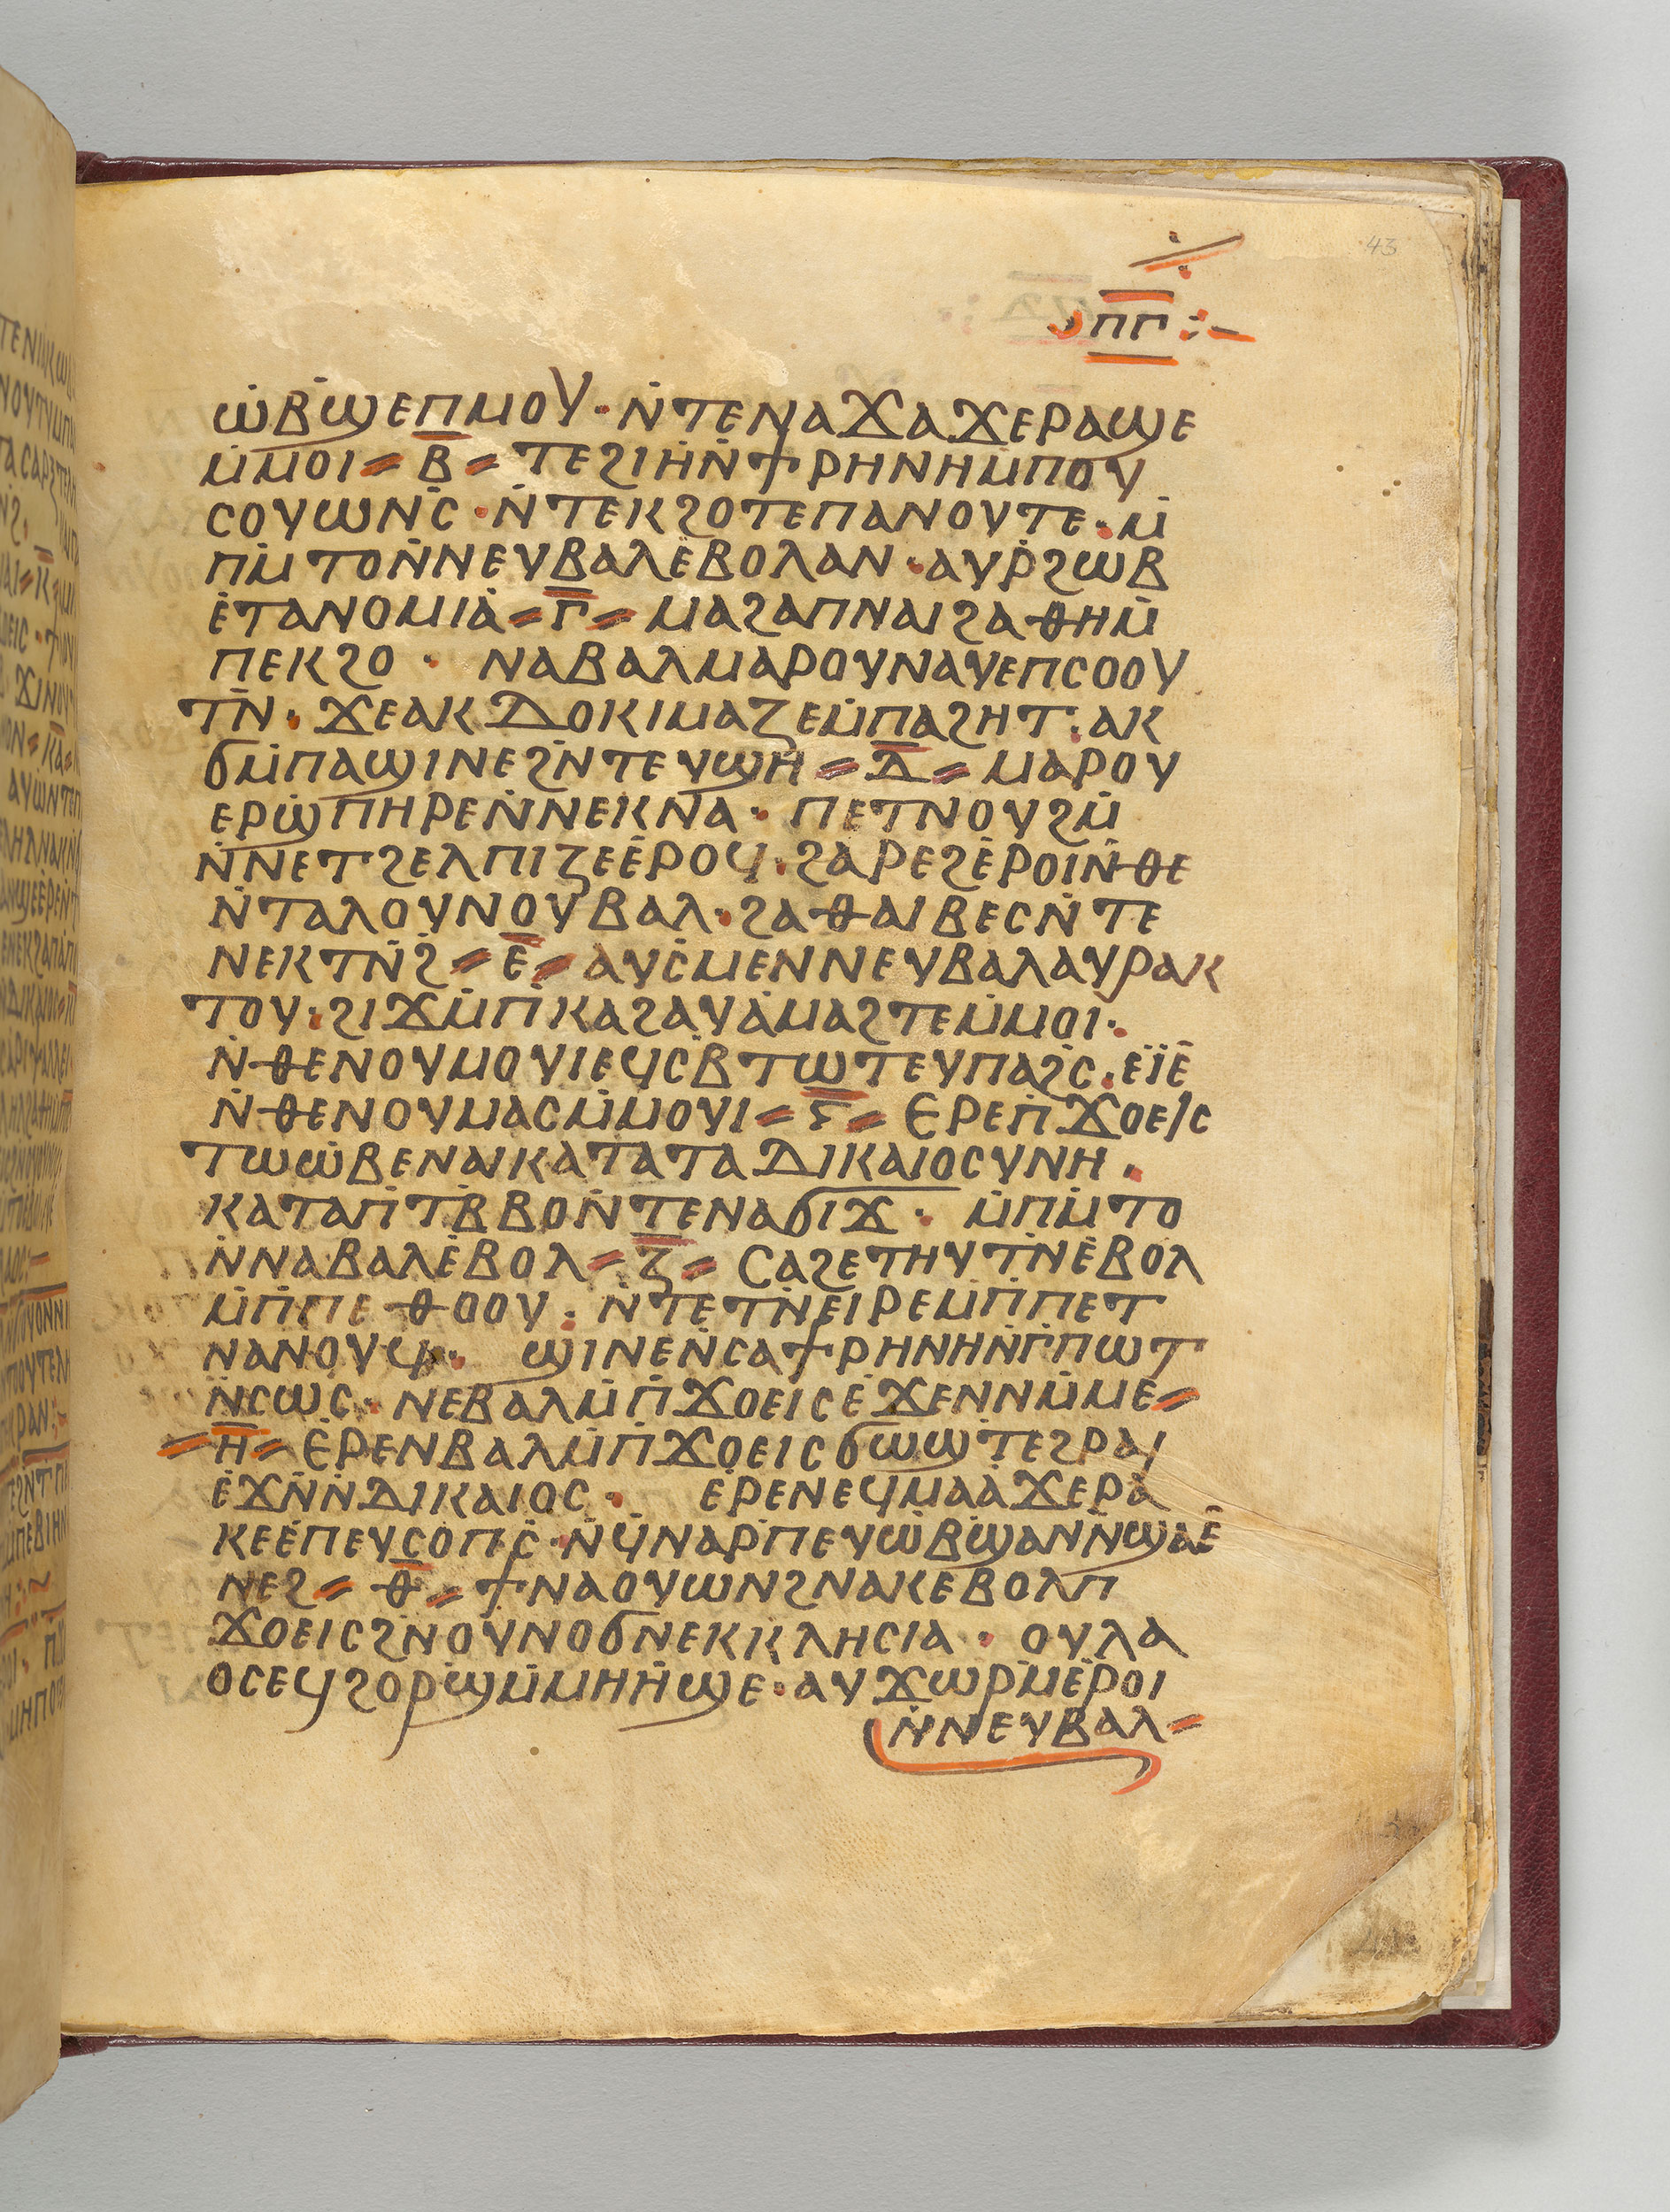 43
ⲡⲅ :–
ⲱ̇ⲃ̇ϣⲉⲡⲙⲟⲩ · ⲛ̇ⲧⲉⲛⲁϫⲁϫⲉⲣⲁϣⲉ
ⲙ̇ⲙⲟⲓ = ⲃ̅ = ⲧⲉϩⲓⲏⲛ̇ϯⲣⲏⲛⲏⲙ̇ⲡⲟⲩ
ⲥⲟⲩⲱⲛⲥ̇ · ⲛ̇ⲧⲉⲕϩⲟⲧⲉⲡⲁⲛⲟⲩⲧⲉ · ⲙ̇
ⲡⲙ̇ⲧⲟⲛ̇ⲛⲉⲩⲃⲁⲗⲉ̇ⲃⲟⲗⲁⲛ · ⲁⲩⲣ̇ϩⲱⲃ
ⲉ̇ⲧⲁⲛⲟⲙⲓⲁ̇ = ⲅ̅ = ⲙⲁϩⲁⲡⲛⲁⲓϩⲁⲑⲏⲙ̇
ⲡⲉⲕϩⲟ · ⲛⲁⲃⲁⲗⲙⲁⲣⲟⲩⲛⲁⲩⲉⲡⲥⲟⲟⲩ
ⲧⲛ̇ · ϫⲉⲁⲕⲇⲟⲕⲓⲙⲁⲍⲉⲙ̇ⲡⲁϩⲏⲧ · ⲁⲕ
ϭⲙ̇ⲡⲁϣⲓⲛⲉϩⲛ̇ⲧⲉⲩϣⲏ = ⲇ̅ = ⲙⲁⲣⲟⲩ
ⲉⲣϣ̇ⲡⲏⲣⲉⲛ̇ⲛⲉⲕⲛⲁ · ⲡⲉⲧⲛⲟⲩϩⲙ̇
ⲛ̇ⲛⲉⲧϩⲉⲗⲡⲓⲍⲉⲉ̇ⲣⲟϥ · ϩⲁⲣⲉϩⲉ̇ⲣⲟⲓⲛ̇ⲑⲉ
ⲛ̇ⲧⲁⲗⲟⲩⲛⲟⲩⲃⲁⲗ · ϩⲁⲑⲁⲓⲃⲉⲥⲛ̇ⲧⲉ
ⲛⲉⲕⲧⲛ̇ϩ̇ = ⲉ̅ = ⲁⲩⲥ̇ⲙⲉⲛⲛⲉⲩⲃⲁⲗⲁⲩⲣⲁⲕ
ⲧⲟⲩ · ϩⲓϫⲙ̇ⲡ̇ⲕⲁϩⲁⲩⲁ̇ⲙⲁϩⲧⲉⲙ̇ⲙⲟⲓ ·
ⲛ̇ⲑⲉⲛⲟⲩⲙⲟⲩⲓⲉϥⲥⲃ̇ⲧⲱⲧⲉⲩⲡⲁϩⲥ̇ · ⲉⲓ̈ⲉ̇
ⲛ̇ⲑⲉⲛⲟⲩⲙⲁⲥⲙ̇ⲙⲟⲩⲓ = ⲋ̅ = ⲉⲣⲉⲡ̇ϫⲟⲉⲓⲥ
ⲧⲱⲱ̇ⲃⲉⲛⲁⲓⲕⲁⲧⲁⲧⲁⲇⲓⲕⲁⲓⲟⲥⲩⲛⲏ ·
ⲕⲁⲧⲁⲡ̇ⲧⲃ̇ⲃⲟⲛ̇ⲧⲉⲛⲁϭⲓϫ · ⲙ̇ⲡⲙ̇ⲧⲟ
ⲛ̇ⲛⲁⲃⲁⲗⲉ̇ⲃⲟⲗ = ⲍ̅ = ⲥⲁϩⲉⲧⲏⲩⲧⲛ̇ⲉ̇ⲃⲟⲗ
ⲙ̇ⲡ̇ⲡⲉⲑⲟⲟⲩ · ⲛ̇ⲧⲉⲧⲛ̇ⲉⲓⲣⲉⲙ̇ⲡ̇ⲡⲉⲧ
ⲛⲁⲛⲟⲩϥ · ϣⲓⲛⲉⲛ̇ⲥⲁϯⲣⲏⲛⲏⲛ̇ⲅ̇ⲡⲱⲧ
ⲛ̇ⲥⲱⲥ · ⲛⲉⲃⲁⲗⲙ̇ⲡ̇ϫⲟⲉⲓⲥⲉ̇ϫⲉⲛⲛⲙ̇ⲙⲉ =
= ⲏ̅ = ⲉ̇ⲣⲉⲛⲃⲁⲗⲙ̇ⲡ̇ϫⲟⲉⲓⲥϭⲱϣ̇ⲧⲉϩⲣⲁⲓ
ⲉ̇ϫⲛ̇ⲛ̇ⲇⲓⲕⲁⲓⲟⲥ · ⲉ̇ⲣⲉⲛⲉϥⲙⲁⲁ̇ϫⲉⲣⲁ
ⲕⲉⲉ̇ⲡⲉⲩⲥⲟⲡⲥ̇ · ⲛ̇ϥ̇ⲛⲁⲣ̇ⲡⲉⲩⲱ̇ⲃ̇ϣⲁⲛⲛ̇ϣⲁⲉ̇
ⲛⲉϩ = ⲑ̅ = ϯⲛⲁⲟⲩⲱⲛϩⲛⲁⲕⲉⲃⲟⲗⲡ
ϫⲟⲉⲓⲥϩⲛ̇ⲟⲩⲛⲟϭⲛⲉⲕⲕⲗⲏⲥⲓⲁ · ⲟⲩⲗⲁ
ⲟⲥⲉϥϩⲟⲣϣ̇ⲙ̇ⲙⲏⲏ̇ϣⲉ · ⲁⲩϫⲱⲣⲙ̇ⲉ̇ⲣⲟⲓ
ⲛ̇ⲛⲉⲩⲃⲁⲗ =